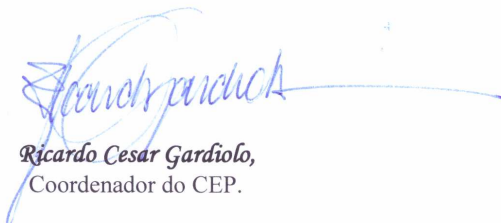 Ricardo Cesar Gardiolo,
Coordenador do CEP.